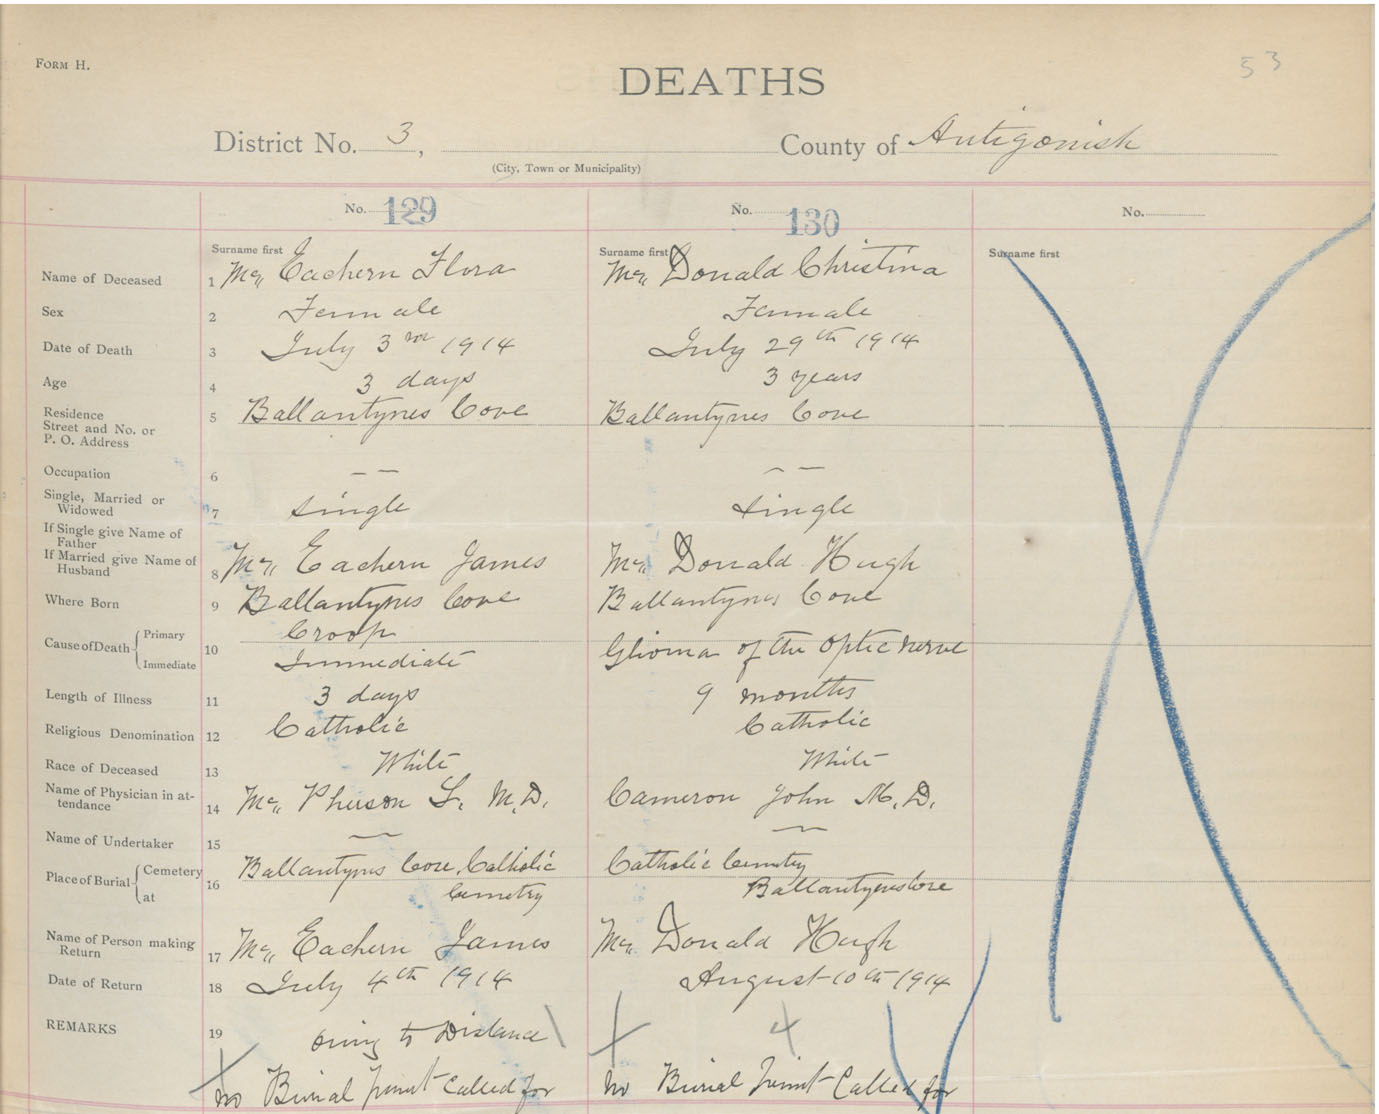 FORM H.
53
DEATHS
District No. 3, County of Antigonish
(City, Town or Municipality)
No. 129 No. 130 No.
Surname first Surname first Surname first
Name of Deceased 1 Mc Eachern Flora Mc Donald Christina
Sex 2 Female Female
Date of Death 3 July 3rd 1914 July 29th 1914
Age 4 3 days 3 years
Residence
Street and No. or 5 Ballantynes Cove Ballantynes Cove
P. O. Address
Occupation 6 — — — —
Single, Married or
Widowed 7 single single
If Single give Name of
Father
If Married give Name of
Husband 8 Mc Eachern James Mc Donald Hugh
Where Born 9 Ballantynes Cove Ballantynes Cove
Cause of Death { Primary 10 Croop Glioma of the Optic nerve
Immediate Immediate
Length of Illness 11 3 days 9 months
Religious Denomination 12 Catholic Catholic
Race of Deceased 13 White White
Name of Physician in at-
tendance 14 Mc Pherson L. M.D. Cameron John M.D.
Name of Undertaker 15 — —
Place of Burial { Cemetery 16 Ballantynes Cove Catholic Catholic Cemetry
at Cemetry Ballantynes Cove
Name of Person making
Return 17 Mc Eachern James Mc Donald Hugh
Date of Return 18 July 4th 1914 August 10th 1914
REMARKS 19 owing to Distance
no Burial Permit Called for no Burial Permit Called for